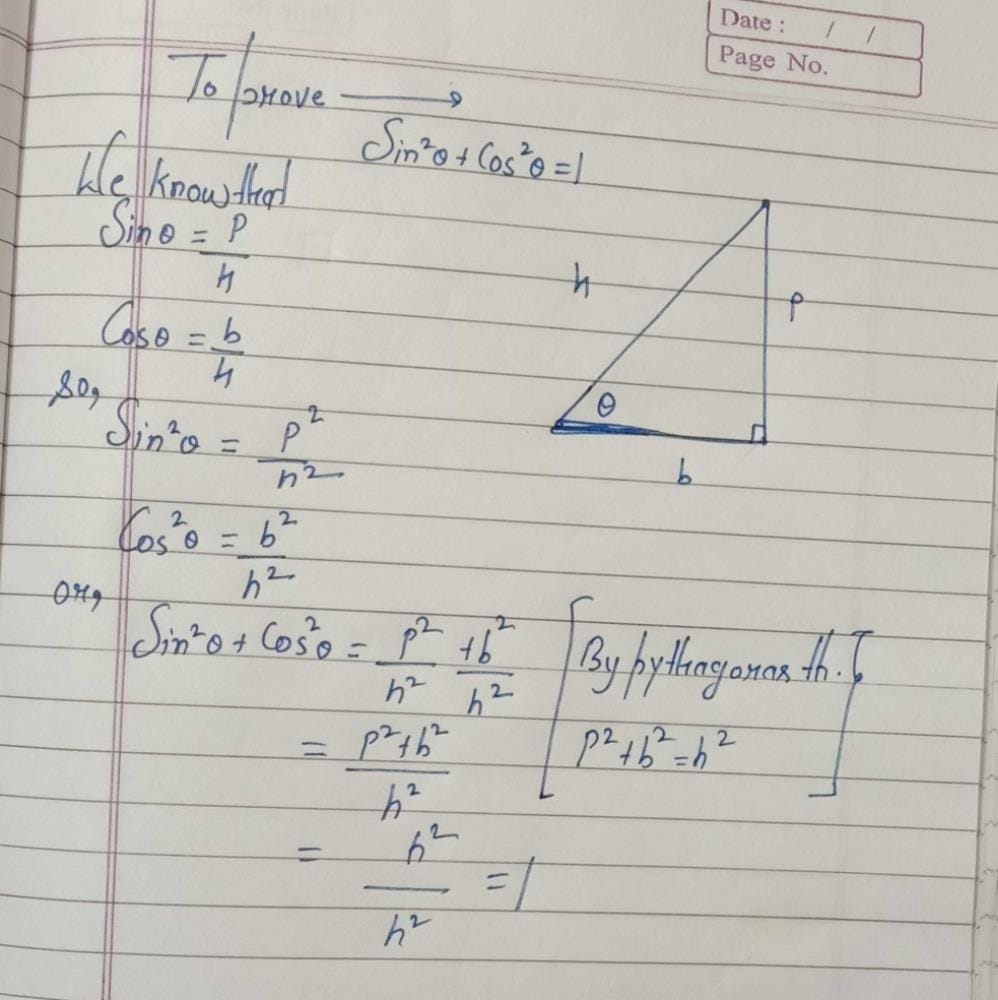 Date : / /
Page No.
To prove ⟶
Sin²θ + Cos²θ = 1
We know that
Sinθ = P/h
Cosθ = b/h
h
P
θ
b
so,
Sin²θ = P²/h²
Cos²θ = b²/h²
or,
Sin²θ + Cos²θ = P²/h² + b²/h² [By pythagoras th.
= P²+b²/h² P²+b²=h²]
= h²/h² = 1